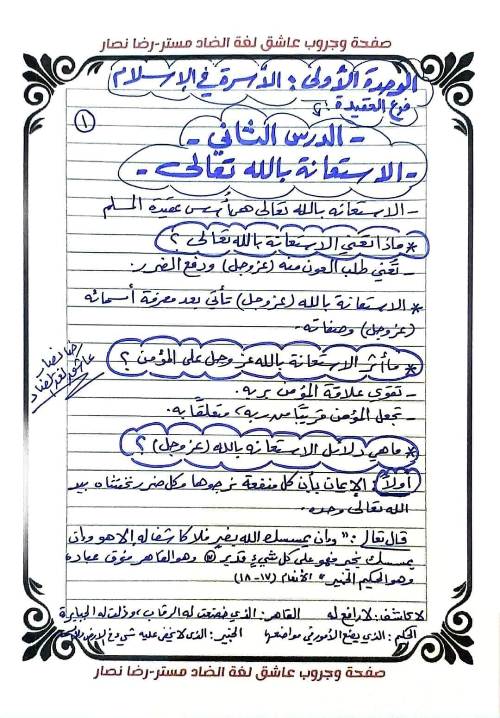 صفحة وجروب عاشق لغة الضاد مستر-رضا نصار
الوحدة الأولى: الأسرة في الإسلام
فرع العقيدة:
١
- الدرس الثاني -
- الاستعانة بالله تعالى -
- الاستعانه بالله تعالى هى أسس عقيدة المسلم
* ماذا تعني الاستعانة بالله تعالى ؟
- تعني طلب العون منه (عز وجل) ودفع الضرر.
* الاستعانة بالله (عز وجل) تأتي بعد معرفة أسمائه
(عز وجل) وصفاته.
* ما أثر الاستعانة بالله عز وجل على المؤمن ؟
- تقوى علاقة المؤمن بربه.
- تجعل المؤمن قريبًا من ربه، متعلقًا به.
رضا نصار
عاشق لغة الضاد
* ماهي دلائل الاستعانه بالله (عز وجل) ؟
أولاً: الإيمان بأن كل منفعة نرجوها وكل ضرر نخشاه بيد
الله تعالى وحده.
قال تعالى: " وإن يمسسك الله بضر فلا كاشف له إلا هو وإن
يمسسك بخير فهو على كل شيئ قدير (١٧) وهو القاهر فوق عباده
وهو الحكيم الخبير " الأنعام (١٧-١٨)
لا كاشف: لا رافع له القاهر: الذي خضعت له الرقاب، وذلت له الجبابرة
الحكيم: الذي يضع الأمور في مواضعها الخبير: الذي لا يخفى عليه شيء في الأرض ولا
صفحة وجروب عاشق لغة الضاد مستر-رضا نصار